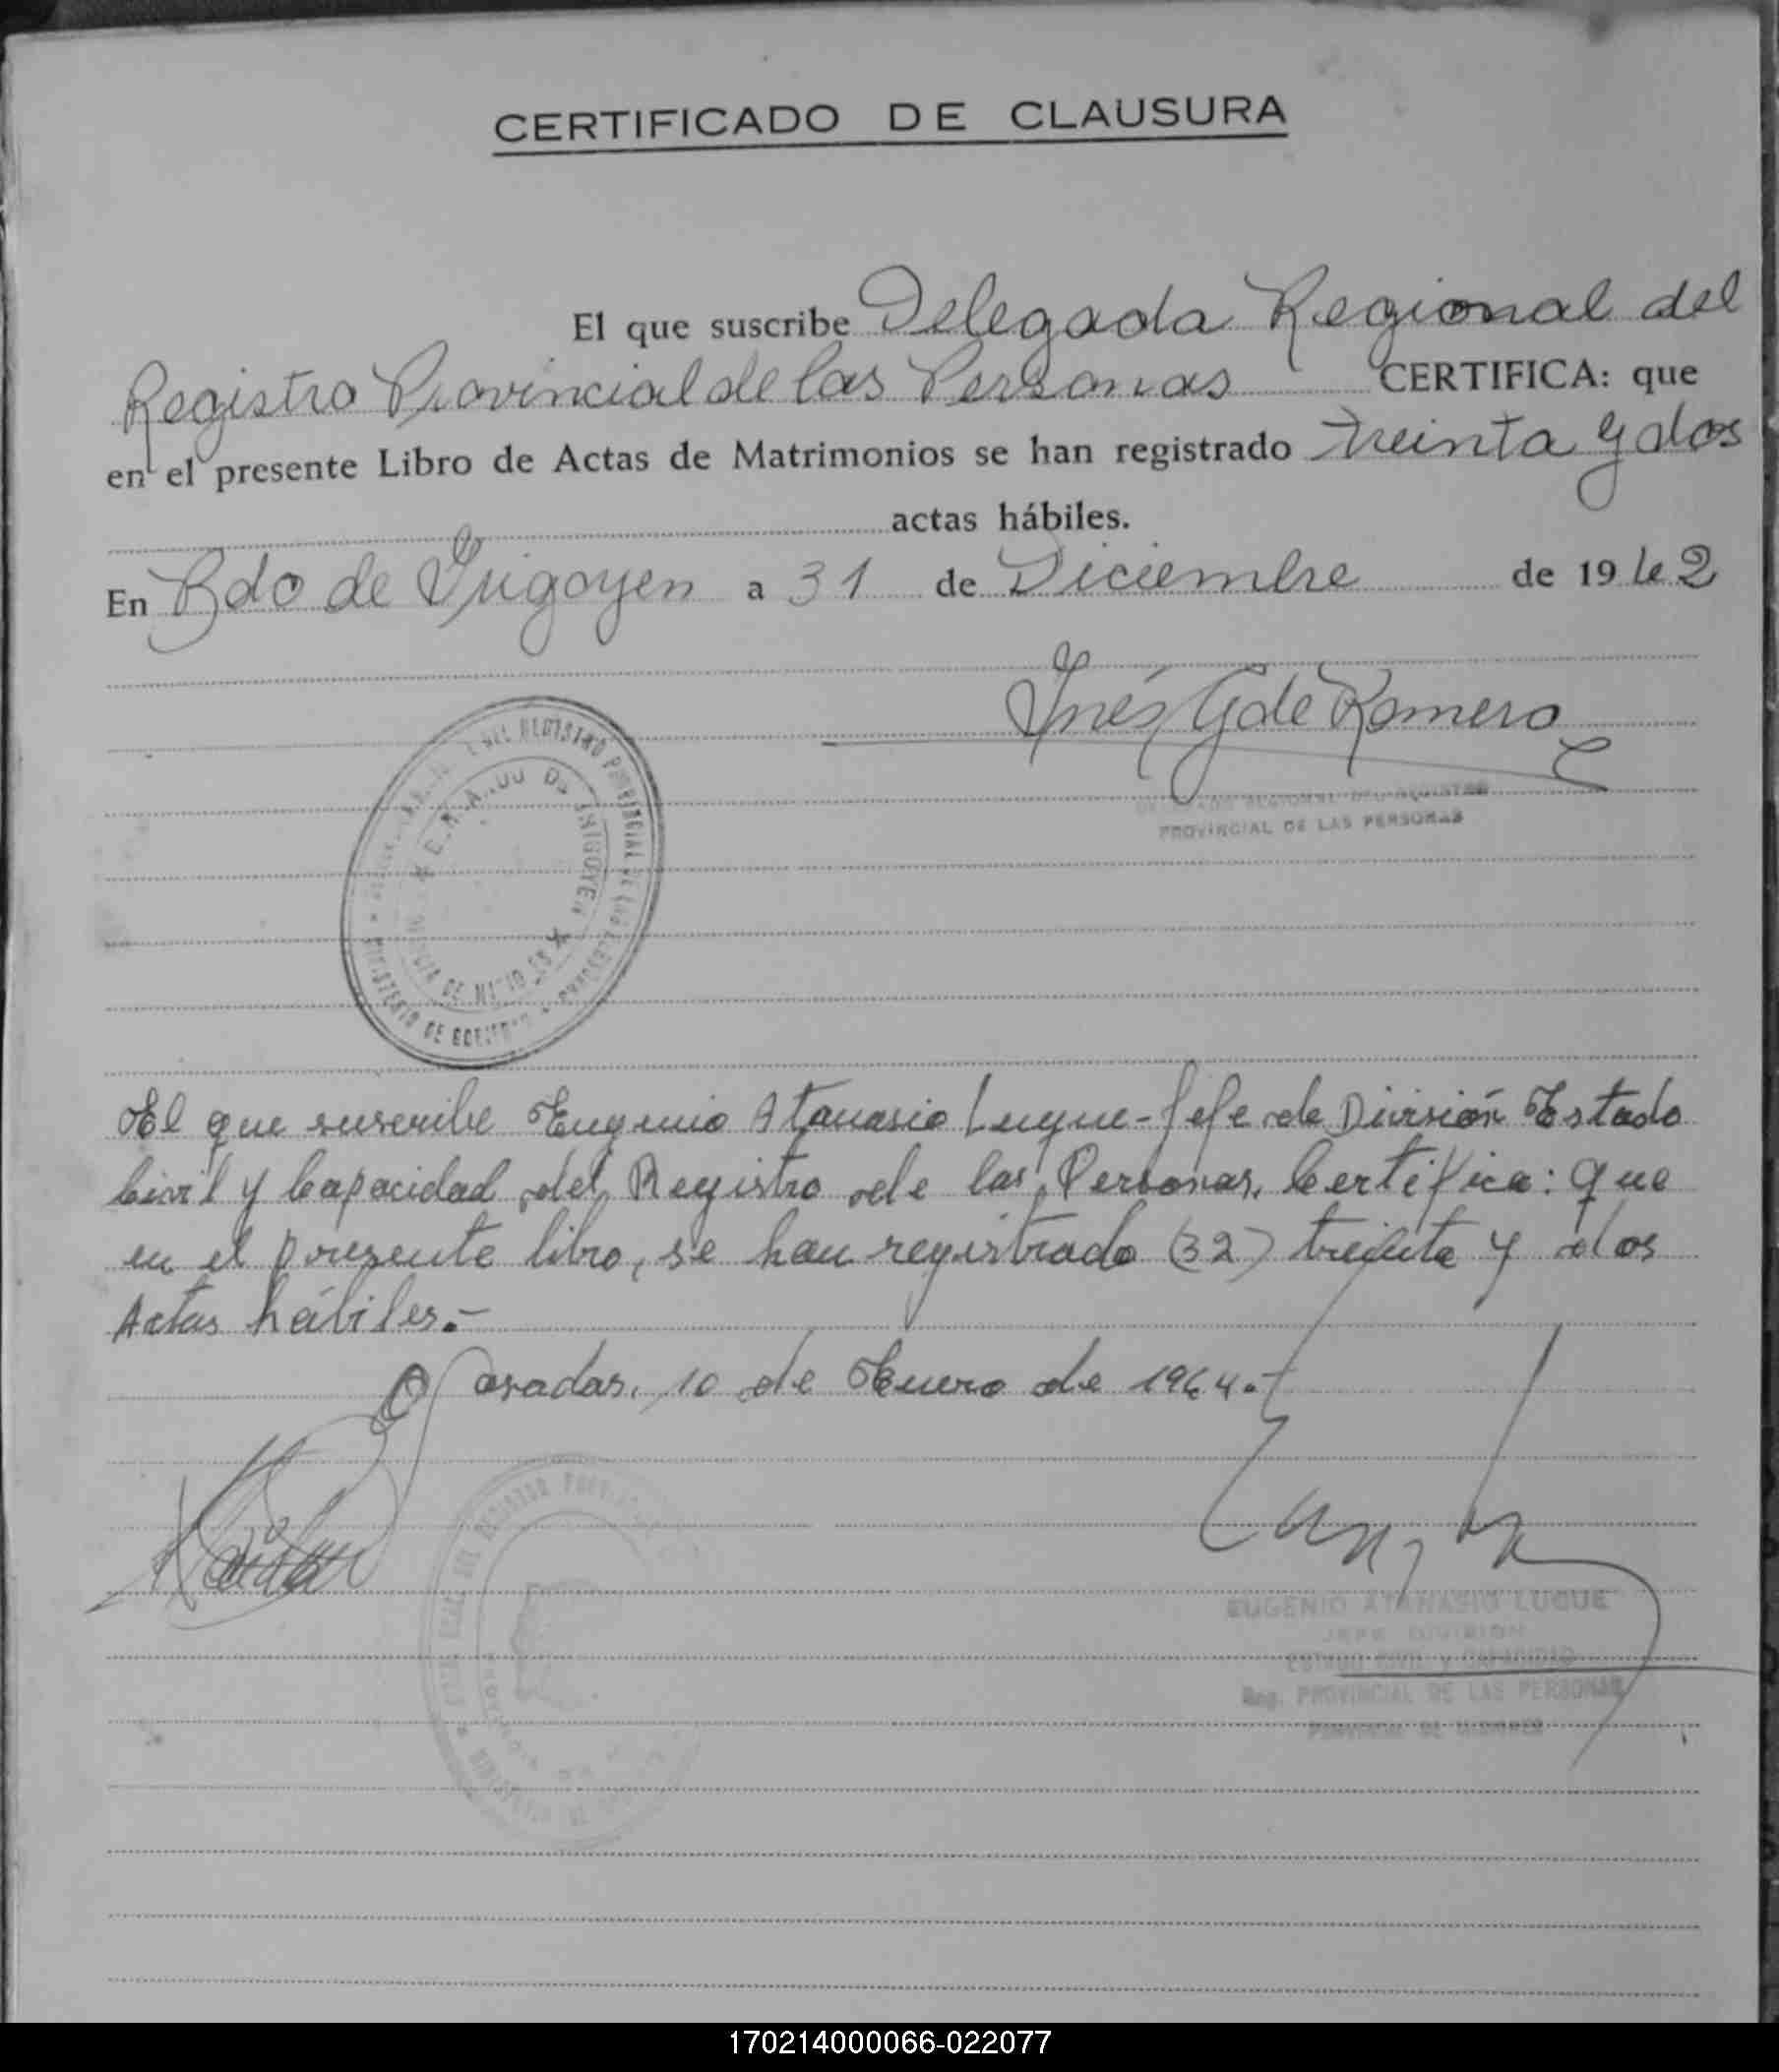 CERTIFICADO DE CLAUSURA
El que suscribe Delegada Regional del
Registro Provincial de las Personas CERTIFICA: que
en el presente Libro de Actas de Matrimonios se han registrado treinta y dos
actas hábiles.
En Bdo de Irigoyen a 31 de Diciembre de 1962
Inés G de Romero
REGIONAL DEL REGISTRO
PROVINCIAL DE LAS PERSONAS
DEL REGISTRO PROVINCIAL DE LAS PERSONAS
MINISTERIO DE GOBIERNO
BERNARDO DE IRIGOYEN
PROVINCIA DE MISIONES
El que suscribe Eugenio Atanasio Luque - Jefe de División Estado
Civil y Capacidad del Registro de las Personas, Certifica: que
en el presente libro, se han registrado (32) treinta y dos
Actas hábiles.-
Posadas, 10 de Enero de 1964.-
EUGENIO ATANASIO LUQUE
JEFE DIVISION
ESTADO CIVIL Y CAPACIDAD
Reg. PROVINCIAL DE LAS PERSONAS
PROVINCIA DE MISIONES
170214000066-022077